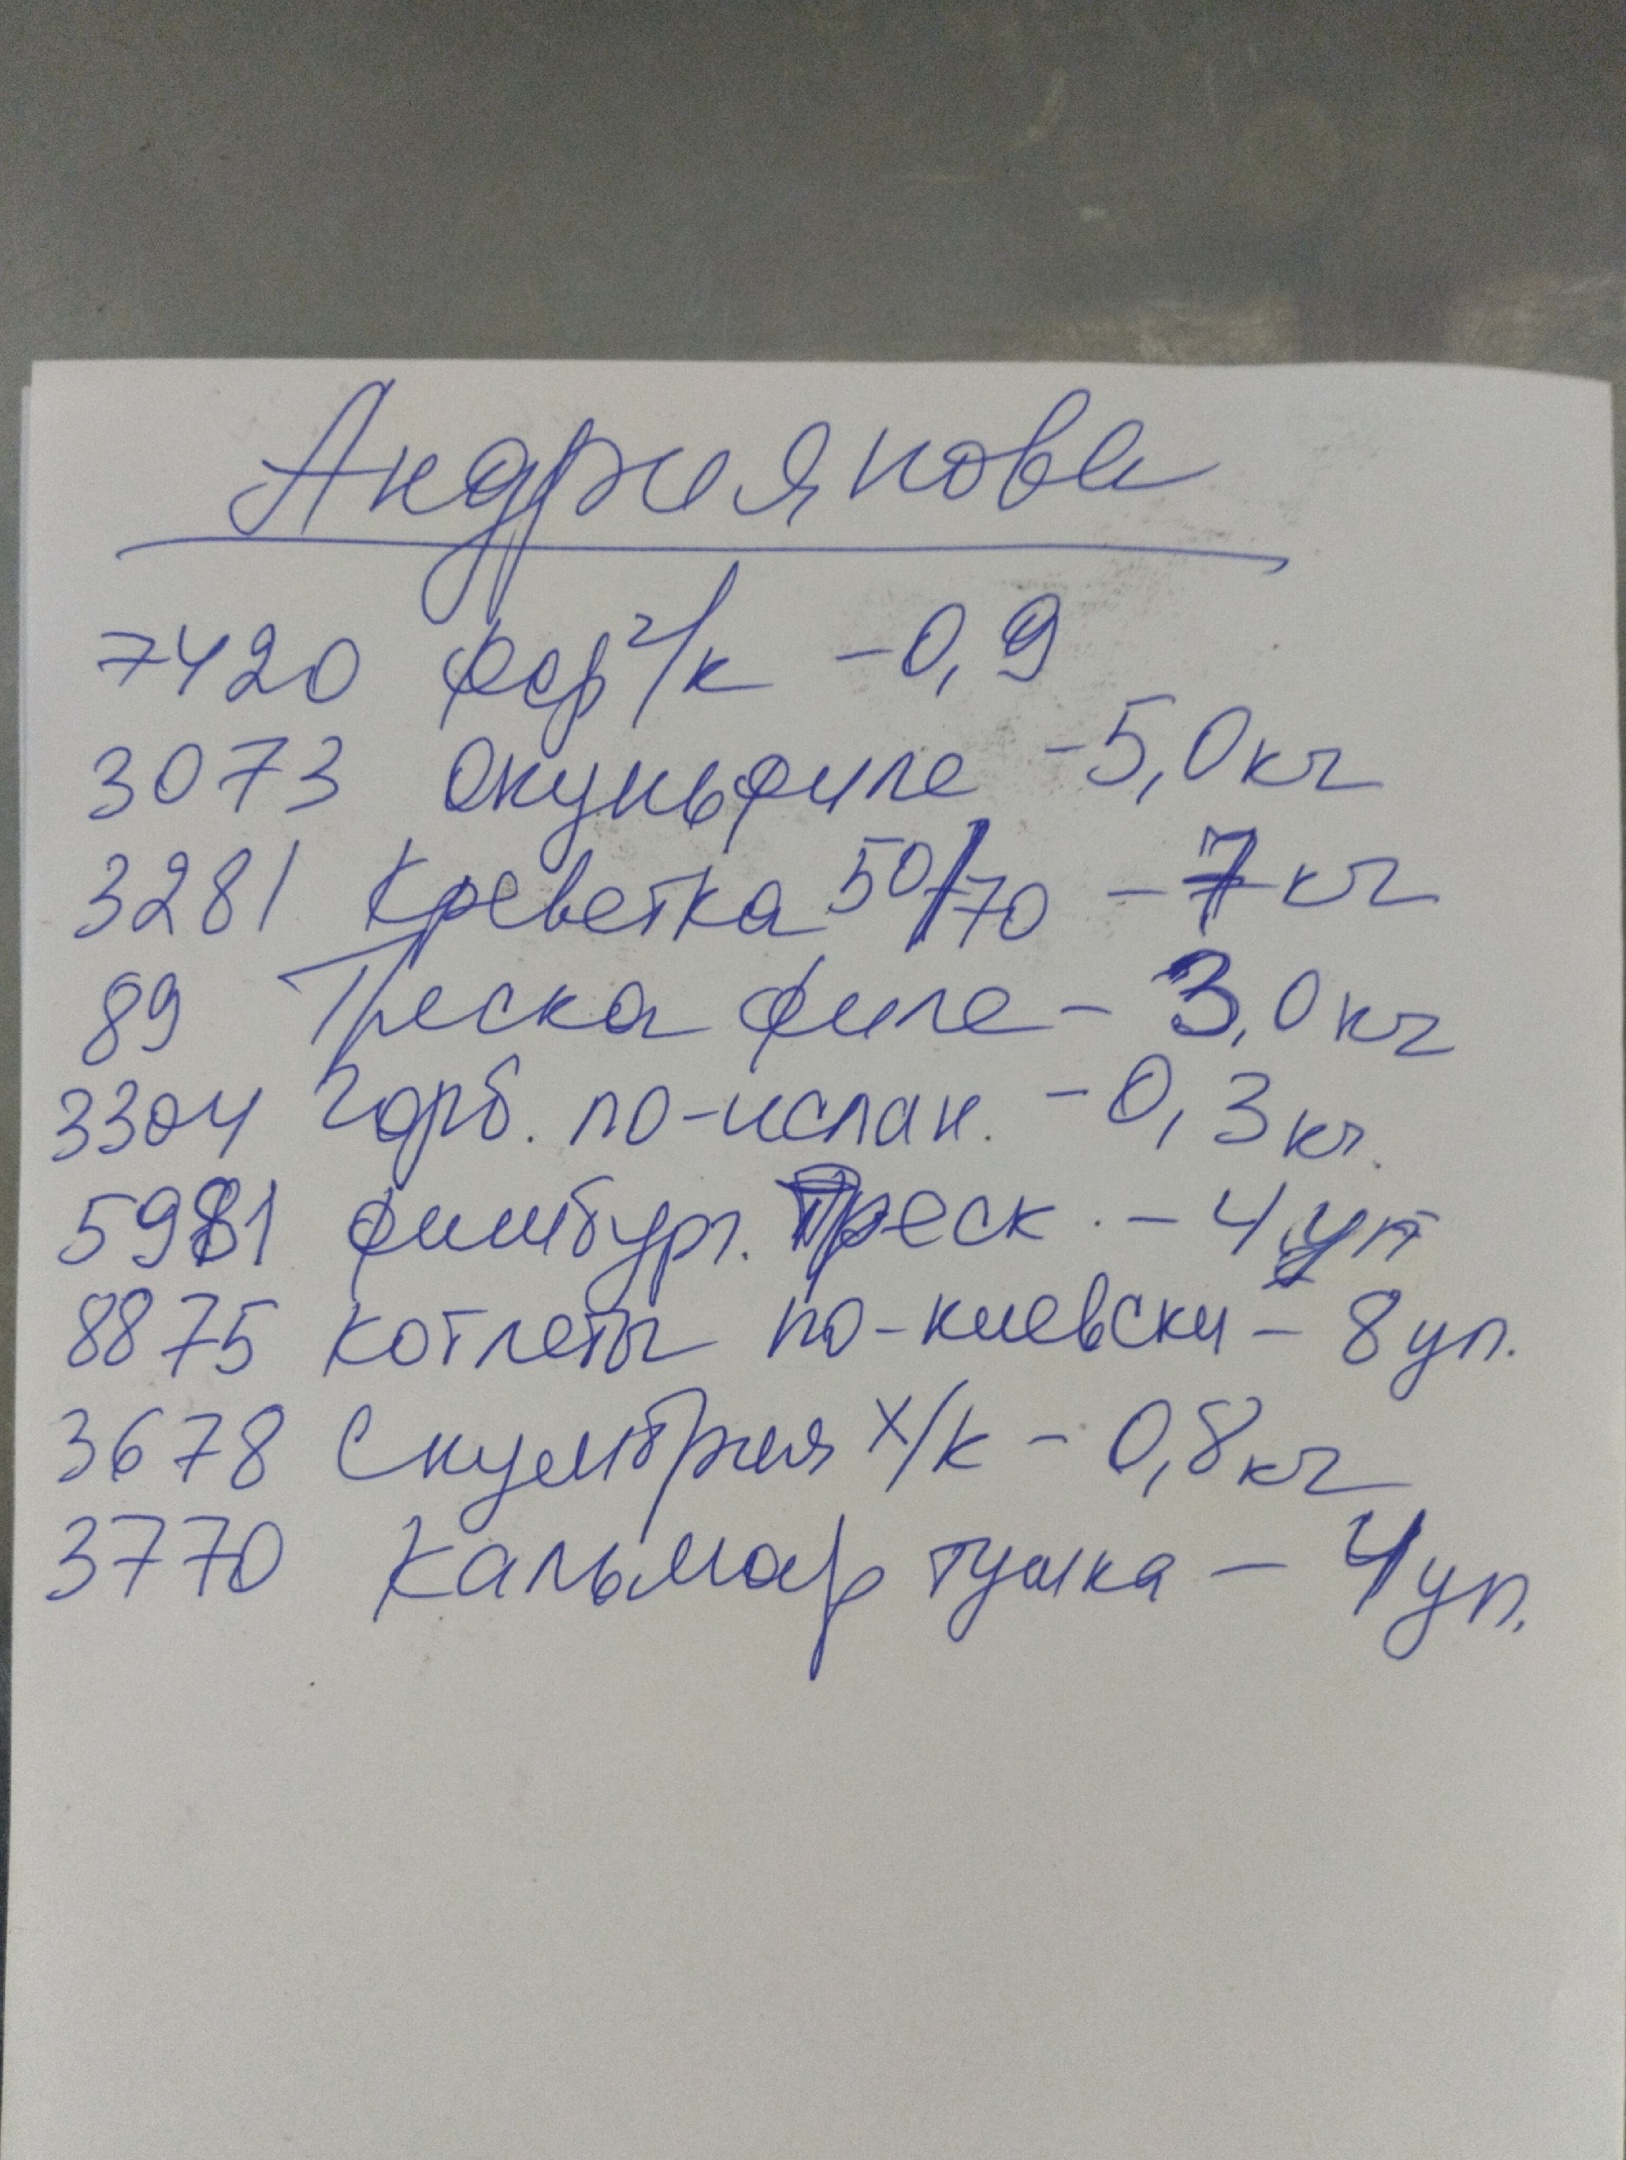 Андриянова
7420 фор г/к - 0,9
3073 Окунь филе - 5,0 кг
3281 Креветка 50/70 - 7 кг
89 Треска филе - 3,0 кг
3304 Горб. по-испан. - 0,3 кг.
5981 фишбург. Треск. - 4 уп
8875 котлеты по-киевски - 8 уп.
3678 Скумбрия х/к - 0,8 кг
3770 Кальмар тушка - 4 уп.